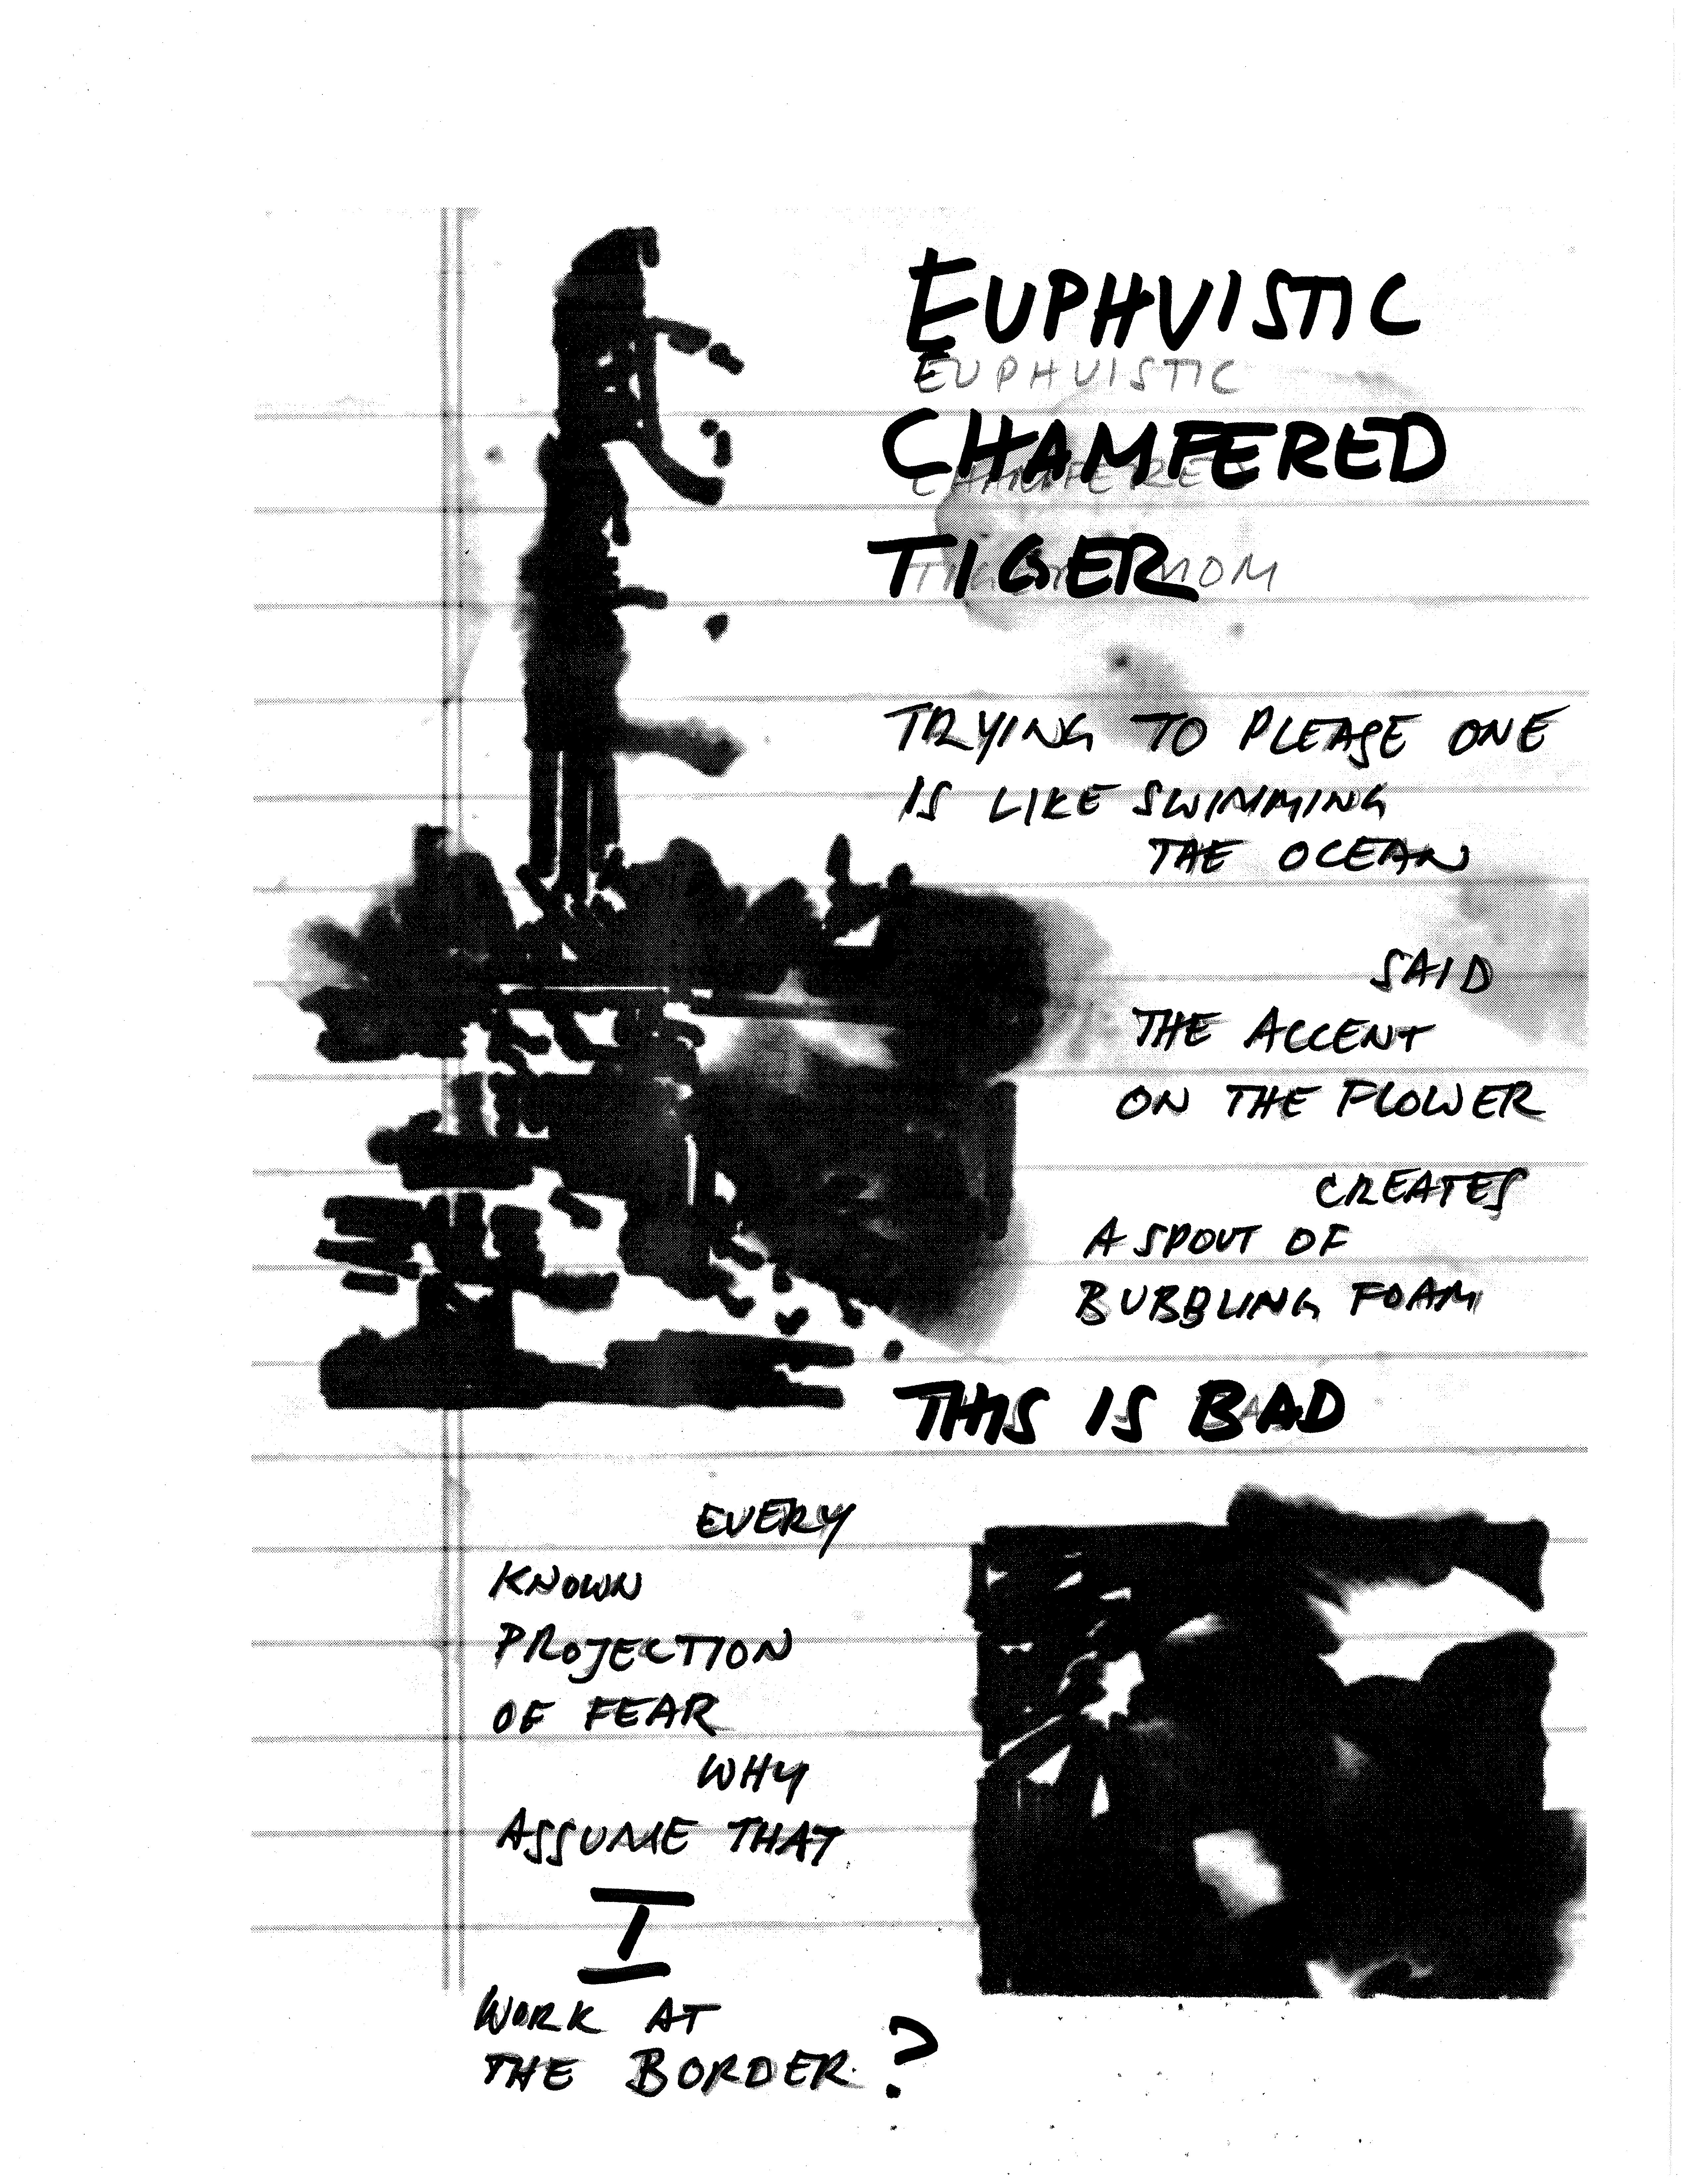 EUPHUISTIC
EUPHUISTIC
CHAMFERED
CHAMFERE
TIGER
MOM
TRYING TO PLEASE ONE
IS LIKE SWIMMING
THE OCEAN
SAID
THE ACCENT
ON THE FLOWER
CREATES
A SPOUT OF
BUBBLING FOAM
THIS IS BAD
EVERY
KNOWN
PROJECTION
OF FEAR
WHY
ASSUME THAT
I
WORK AT
THE BORDER?